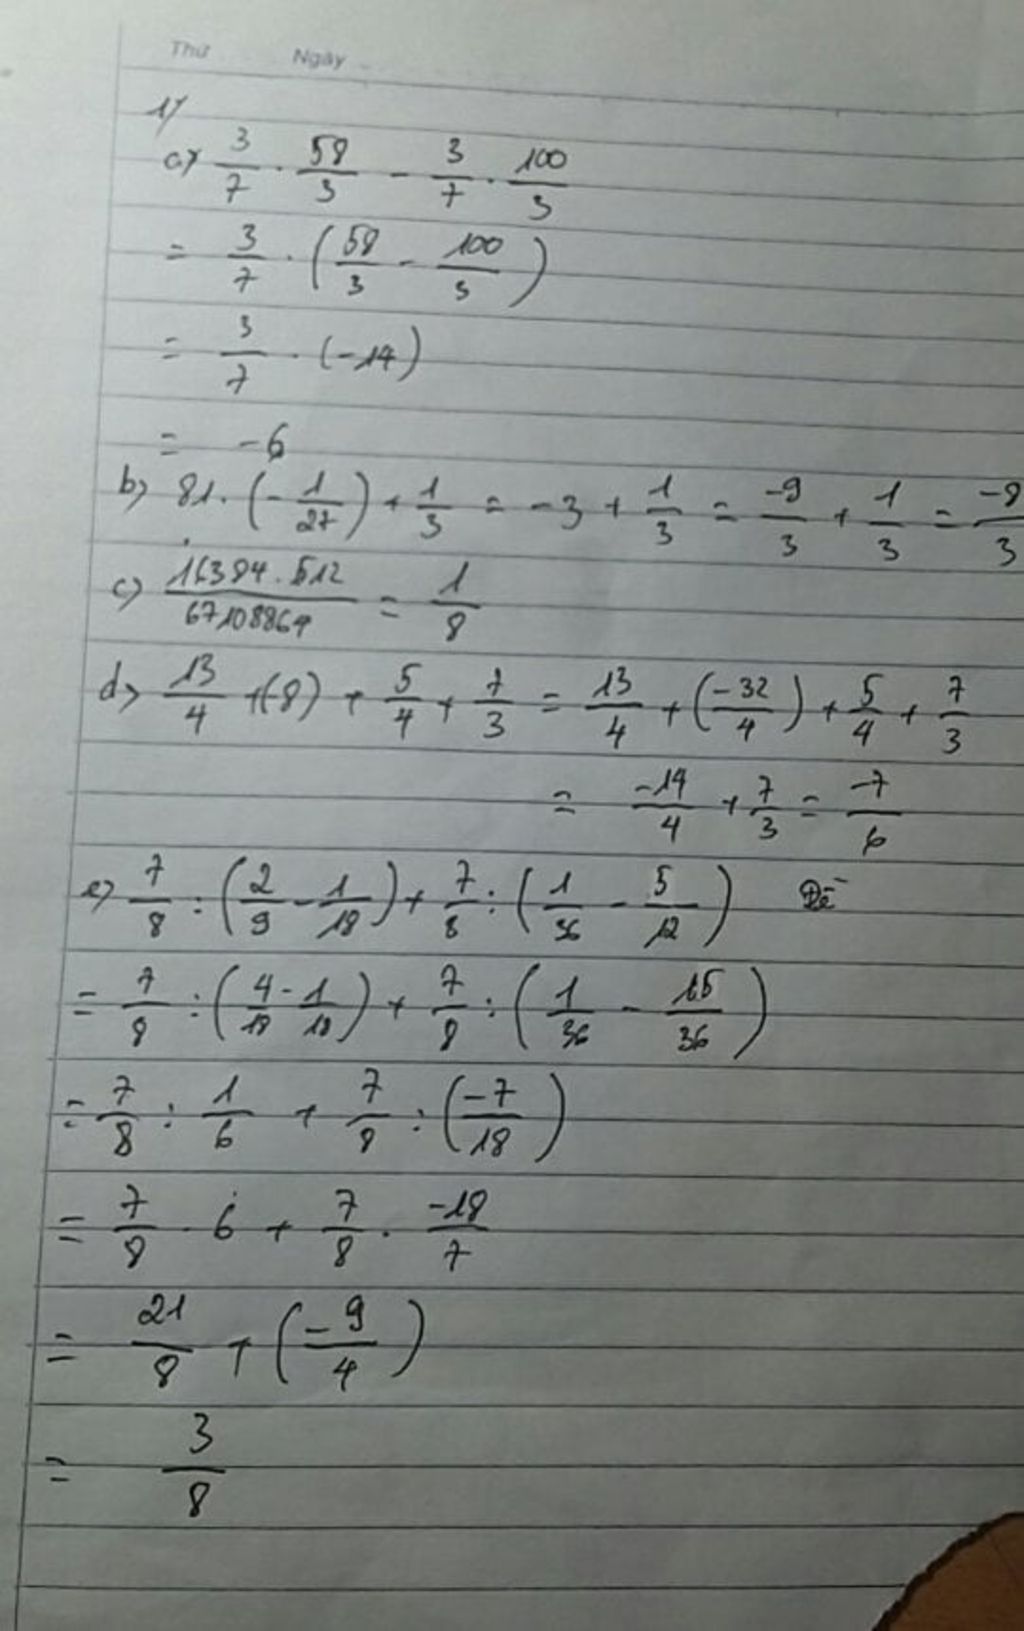 Thứ Ngày
1)
a) 3/7 . 58/3 - 3/7 . 100/3
= 3/7 . (58/3 - 100/3)
= 3/7 . (-14)
= -6
b) 81. (-1/27) + 1/3 = -3 + 1/3 = -9/3 + 1/3 = -8/3
c) 16384.512/67108864 = 1/8
d) 13/4 + (-8) + 5/4 + 7/3 = 13/4 + (-32/4) + 5/4 + 7/3
= -14/4 + 7/3 = -7/6
e) 7/8 : (2/9 - 1/18) + 7/8 : (1/36 - 5/12) Đề
= 7/8 : (4/18 - 1/18) + 7/8 : (1/36 - 15/36)
= 7/8 : 1/6 + 7/8 : (-7/18)
= 7/8 . 6 + 7/8 . -18/7
= 21/8 + (-9/4)
= 3/8